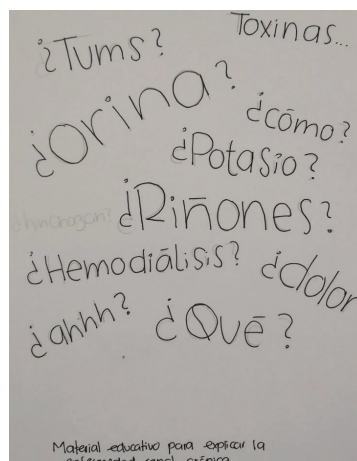 Toxinas...
¿Tums?
¿orina?
¿cómo?
¿Potasio?
¿Riñones?
¿Hemodiálisis?
¿dolor
¿ahhh?
¿Qué?
Material educativo para explicar la
enfermedad renal crónica